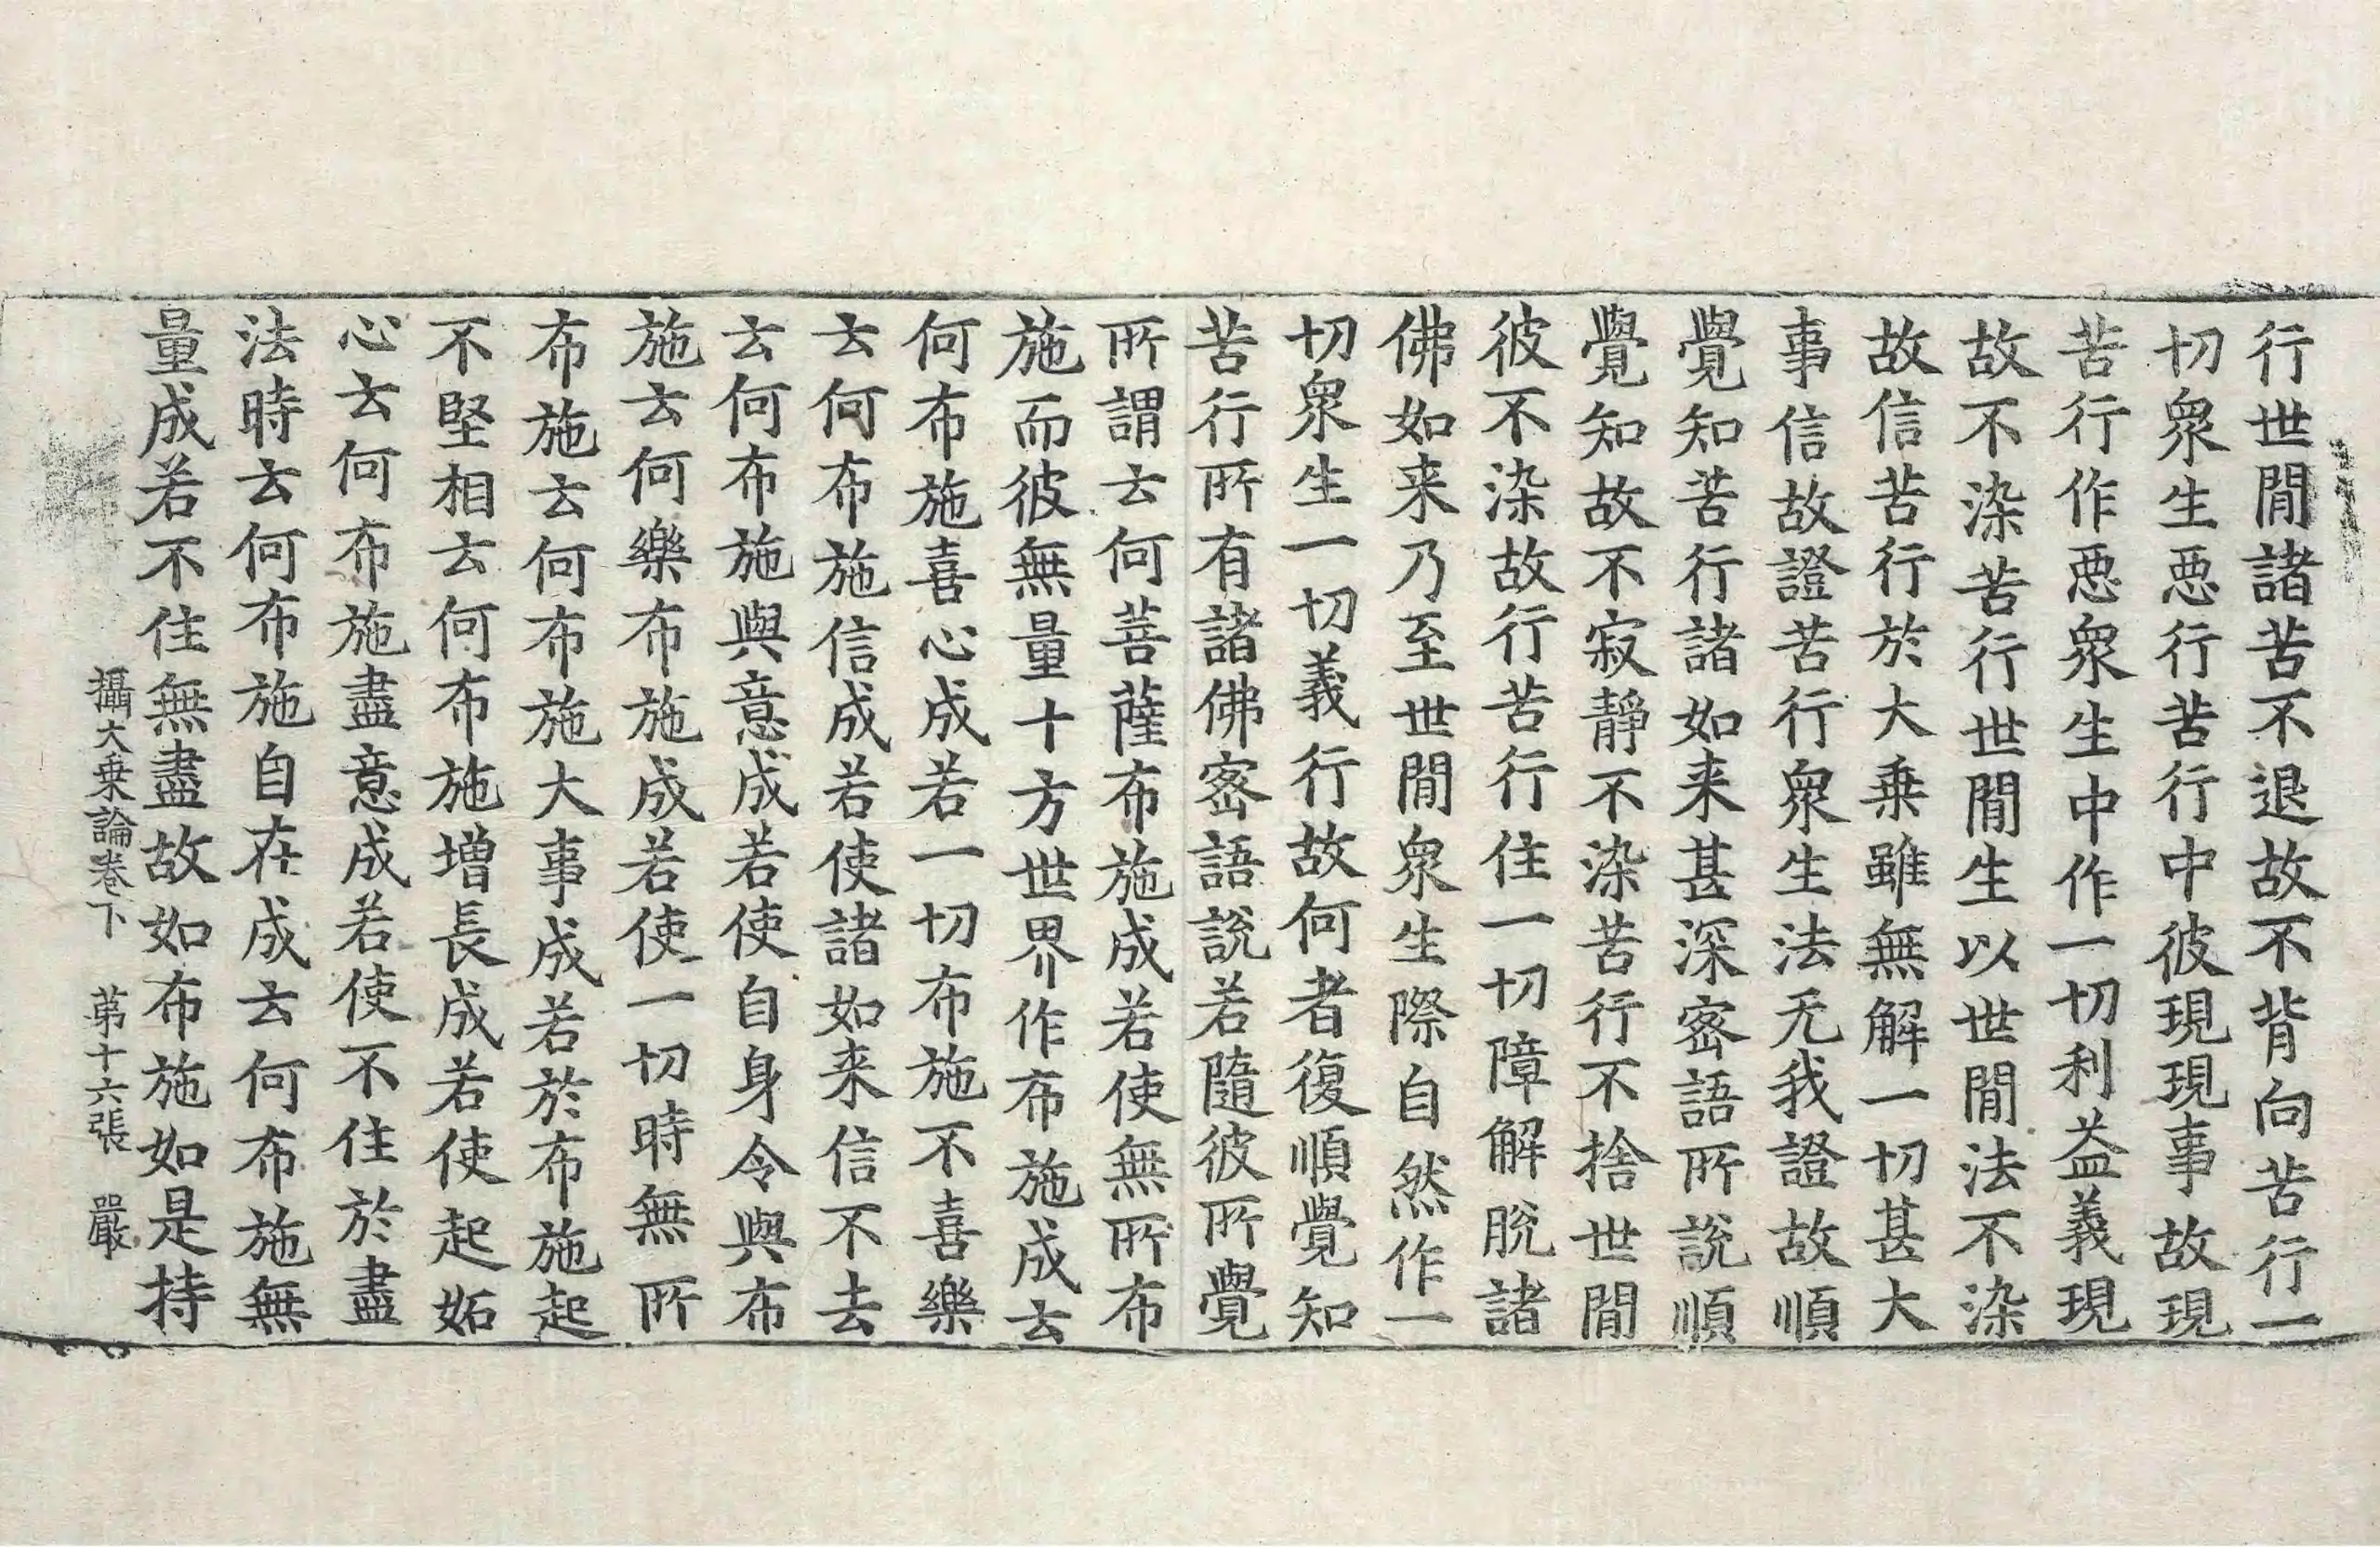 行世閒諸苦不退故不背向苦行一
切衆生惡行苦行中彼現現事故現
苦行作惡衆生中作一切利益義現
故不染苦行世閒生以世閒法不染
故信苦行於大乗雖無解一切甚大
事信故證苦行衆生法无我證故順
覺知苦行諸如来甚深宻語所說順
覺知故不寂靜不染苦行不捨世閒
彼不染故行苦行住一切障解脫諸
佛如来乃至世閒衆生際自然作一
切衆生一切義行故何者復順覺知
苦行所有諸佛宻語說若隨彼所覺
所謂云何菩薩布施成若使無所布
施而彼無量十方世界作布施成云
何布施喜心成若一切布施不喜樂
云何布施信成若使諸如来信不去
云何布施與意成若使自身令與布
施云何樂布施成若使一切時無所
布施云何布施大事成若於布施起
不堅相云何布施增長成若使起妬
心云何布施盡意成若使不住於盡
法時云何布施自在成云何布施無
量成若不住無盡故如布施如是持
攝大乗論卷下 苐十六張 嚴